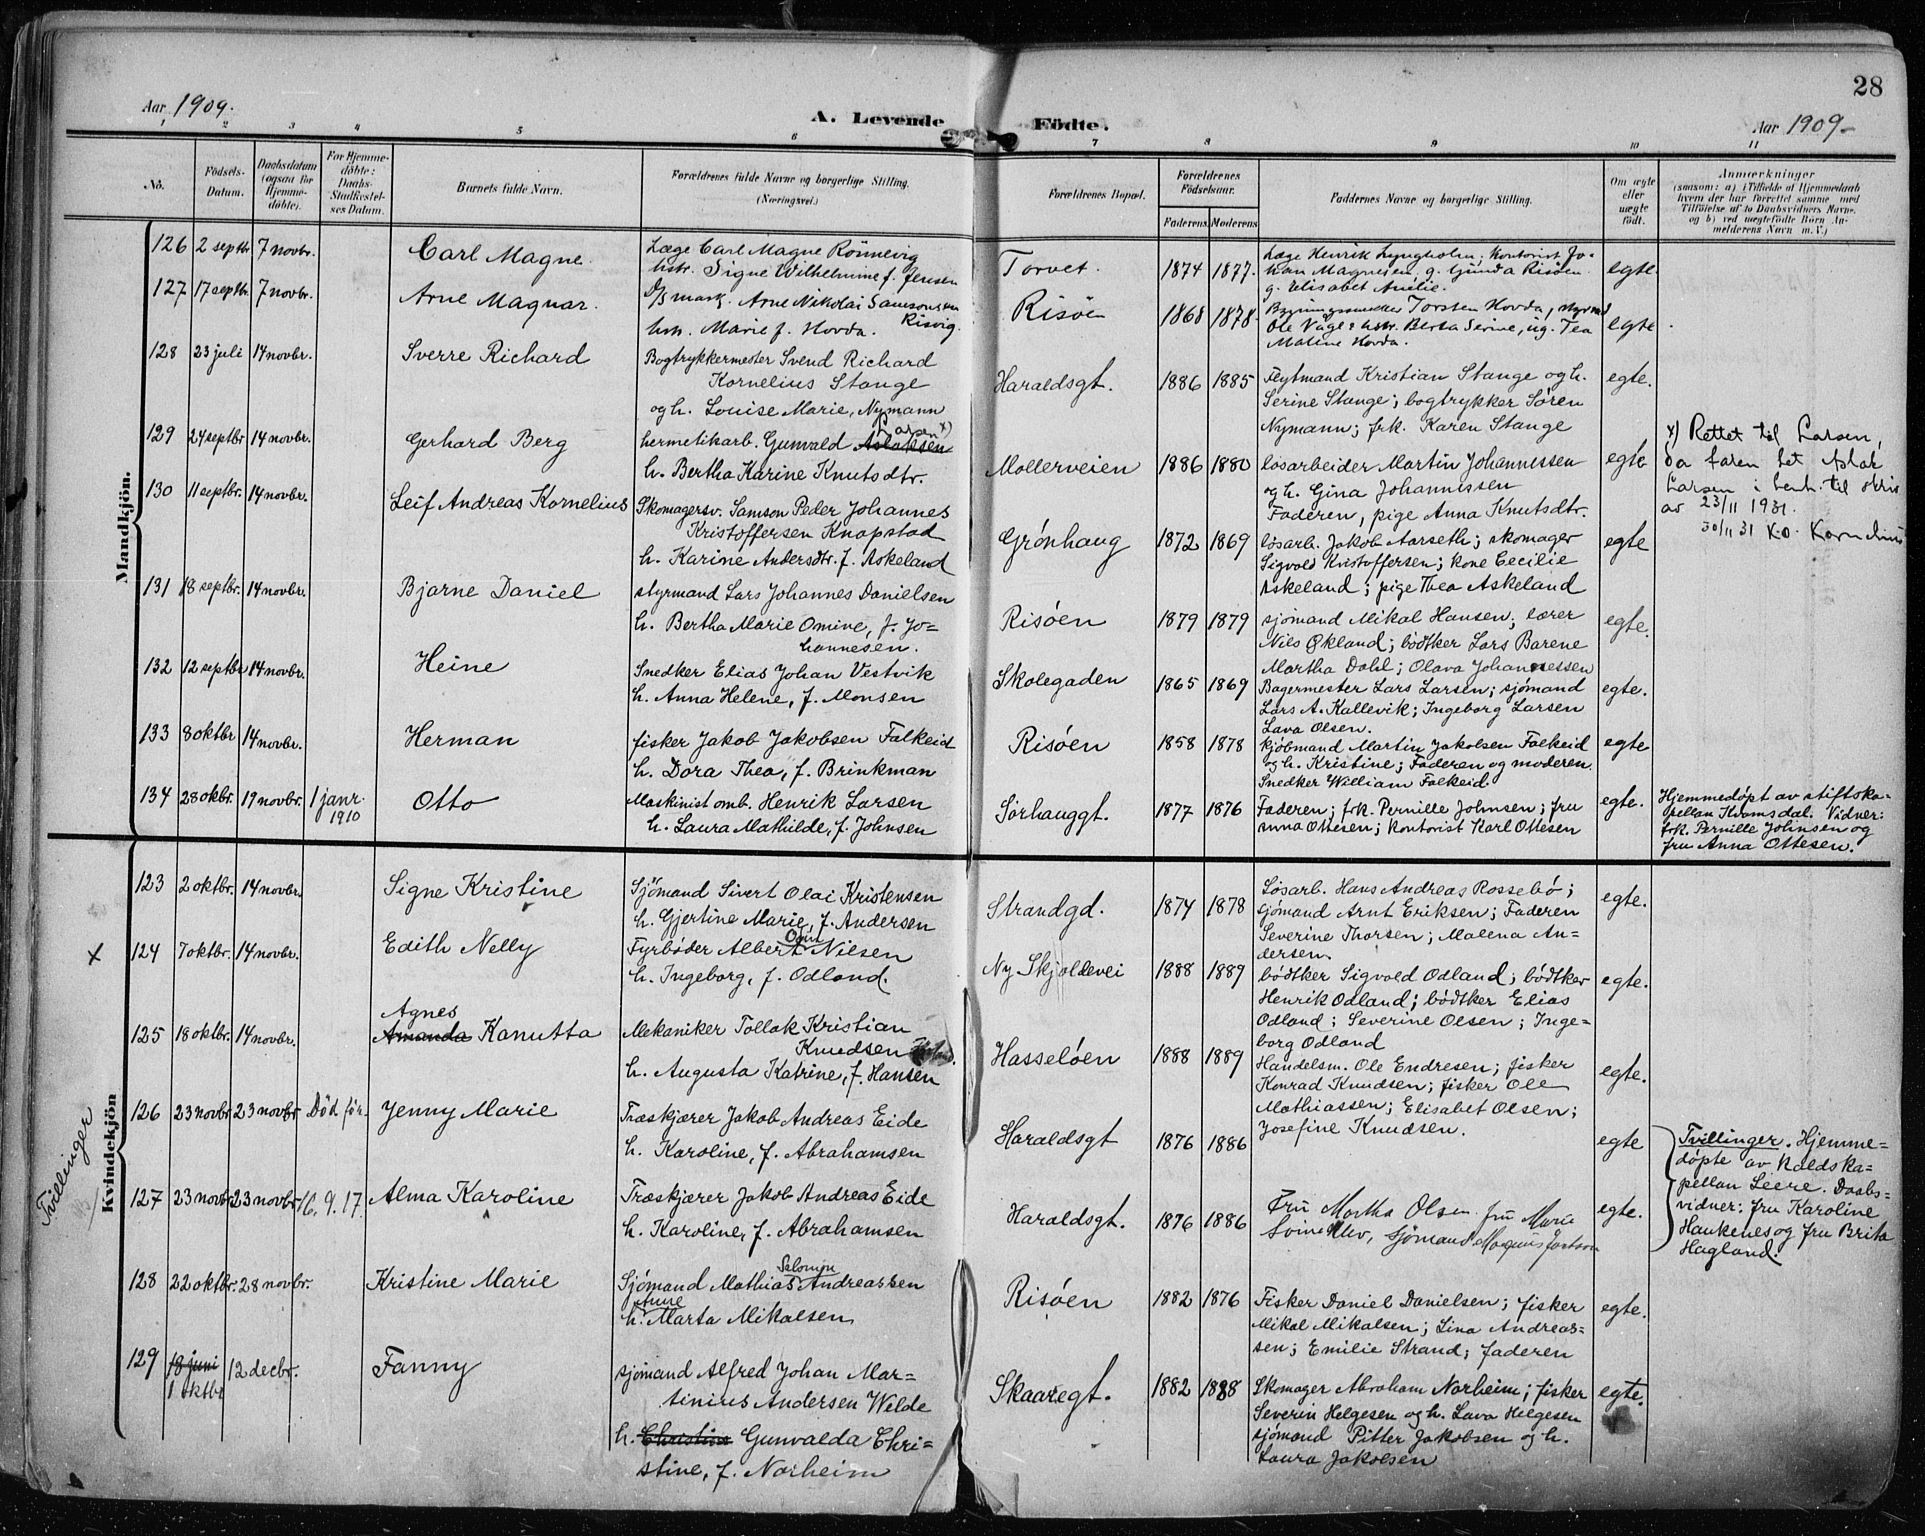 28
Aar 1909.
A. Levende Födte.
Aar 1909
1 2 3 4 5 6 7 8 9 10 11
No.
Födsels-Datum.
Daabsdatum (ogsaa for Hjemmedöbte).
For Hjemmedöbte: Daabs-Stadfestelses Datum.
Barnets fulde Navn.
Forældrenes fulde Navne og borgerlige Stilling. (Næringsvei.)
Forældrenes Bopæl.
Forældrenes Födselsaar.
Faderens Moderens
Faddernes Navne og borgerlige Stilling.
Om ægte eller uægte födt.
Anmærkninger
(saasom: a) i Tilfælde af Hjemmedaab hvem der har forrettet samme med Tilföielse af to Daabsvidners Navne, og b) ved uægtefödte Börn Anmelderens Navn m. V.)
Mandkjön.
126 2 septbr 7 novbr. Carl Magne. Læge Carl Magne Rönnevig
hstr. Signe Wilhelmine f. Jensen
Torvet. 1874 1877. Læge Henrik Lyngholm; Kontorist Jo-
han Magnesen, g. Gunda Risöen
g. Elisabet Amelie. egte.
127 17 septbr. 7 novbr. Arne Magnar. D/S mask. Arne Nikolai Samsonsen
Risvig.
hst. Marie f. Hovda.
Risöen 1868 1878. Torsten Hovda,
Ole Våge & hstr. Berta Serine, ug. Tea
Maline Hovda. egte.
128 23 juli 14 novbr. Sverre Richard Bogtrykkermester Svend Richard
Kornelius Stange
og h. Louise Marie, Nymann
Haraldsgt. 1886 1885 Fløtmand Kristian Stange og h.
Serine Stange; bogtrykker Søren
Nymann; frk. Karen Stange egte.
129 24 septbr 14 novbr. Gerhard Berg hermetikarb. Gunvald Aslaksen Larsen x)
h. Bertha Karine Knutsdtr.
Møllerveien 1886 1880 løsarbeider Martin Johannessen
og h. Gina Johannissen
Faderen, pige Anna Knutsdtr. egte
x) Rettet til Larsen,
da faren het Aslak
Larsen i henh. til skriv
av 23/11 1931.
30/11 31 KO. Kornelius
130 11 septbr. 14 novbr. Leif Andreas Kornelius Skomagersv. Samson Peder Johannes
Kristoffersen Knapstad
h. Karine Andersdtr. f. Askeland
Grønhaug 1872 1869 løsarb. Jakob Aarseth; skomager
Sigvald Kristoffersen; kone Cecilie
Askeland; pige Thea Askeland egte
131 18 septbr. 14 novbr. Bjarne Daniel styrmand Lars Johannes Danielsen
h. Bertha Marie Omine, f. Jo=
hannesen.
Risøen 1879 1879 sjømand Mikal Hansen; lærer
Nils Økland; bødtker Lars Barene
Martha Dahl; Olava Johannessen egte.
132 12 septbr 14 novbr. Heine Snedker Elias Johan Vestvik
h. Anna Helene, f. Monsen
Skolegaden 1865 1869 Bagermester Lars Larsen; sjømand
Lars A. Kallevik; Ingeborg Larsen
Lava Olsen. egte.
133 8 oktbr 14 novbr. Herman fisker Jakob Jakobsen Falkeid
h. Dora Thea, f. Brinkman
Risøen 1858 1878 kjøbmand Martin Jakobsen Falkeid
og h. Kristine; Faderen og moderen.
Snedker William Falkeid egte
134 28 oktbr. 19 novbr. 1 janr. 1910 Otto Maskinist omb. Henrik Larsen
h. Laura Mathilde, f. Johnsen
Sørhauggt. 1877 1876 Faderen; frk. Pernille Johnsen; fru
Anna Ottesen; kontorist Karl Ottesen egte.
Hjemmedøpt av stiftska-
pellan Kvamsdal. Vidner:
frk. Pernille Johnsen og
fru Anna Ottesen.
Kvindekjön
123 2 oktbr. 14 novbr. Signe Kristine Sjømand Sivert Olai Kristensen
h. Gjertine Marie, f. Andersen
Strandgd. 1874 1878 Løsarb. Hans Andreas Rossebø;
sjømand Arnt Eriksen; Faderen
Severine Thorsen; Malena An=
dersen egte.
x 124 7 oktbr. 14 novbr. Edith Nelly Fyrbøder Albert Odin Nilsen
h. Ingeborg, f. Odland.
Ny Skjoldevei 1888 1889 bødtker Sigvald Odland; bødtker
Henrik Odland; bødtker Elias
Odland; Severine Olsen; Inge=
borg Odland egte.
125 18 oktbr. 14 novbr. Agnes Amanda Kanutta Mekaniker Tollak Kristian
Knudsen
h. Augusta Katrine, f. Hansen
Hasseløen 1888 1889 Handelsm. Ole Endresen; fisker
Konrad Knudsen; fisker Ole
Mathiassen; Elisabet Olsen;
Josefine Knudsen. egte.
Tvillinger
126 23 novbr 23 novbr Død før. Jenny Marie Træskjærer Jakob Andreas Eide
h. Karoline, f. Abrahamsen
Haraldsgt 1876 1886 egte
Tvillinger. Hjemme=
døpte av Kaldska=
pellan Leere. Daabs-
vidner: fru Karoline
Haukenes og fru Brita
Hagland.
127 23 novbr 23 novbr 16.9.17. Alma Karoline Træskjærer Jakob Andreas Eide
h. Karoline, f. Abrahamsen
Haraldsgt. 1876 1886 Fru Martha Olsen. fru Marie
Sjømand Magnus egte.
128 22 oktbr. 28 novbr. Kristine Marie Sjømand Mathias Salomon Andreassen
h. Anne Marta Mikalsen
Risøen 1882 1876 Fisker Daniel Danielsen; fisker
Mikal Mikalsen; Lina Andreas=
sen; Emilie Strand; faderen egte.
129 18 juni 1 oktbr 12 decbr. Fanny sjømand Alfred Johan Mar=
tinius Andersen Welde
h. Christine Gunvalda Chri=
stine, f. Norheim
Skaaregt. 1882 1888 Skomager Abraham Norheim; fisker
Severin Helgesen og h. Lava Helgesen
sjømand Pitter Jakobsen og h.
Laura Jakobsen egte.